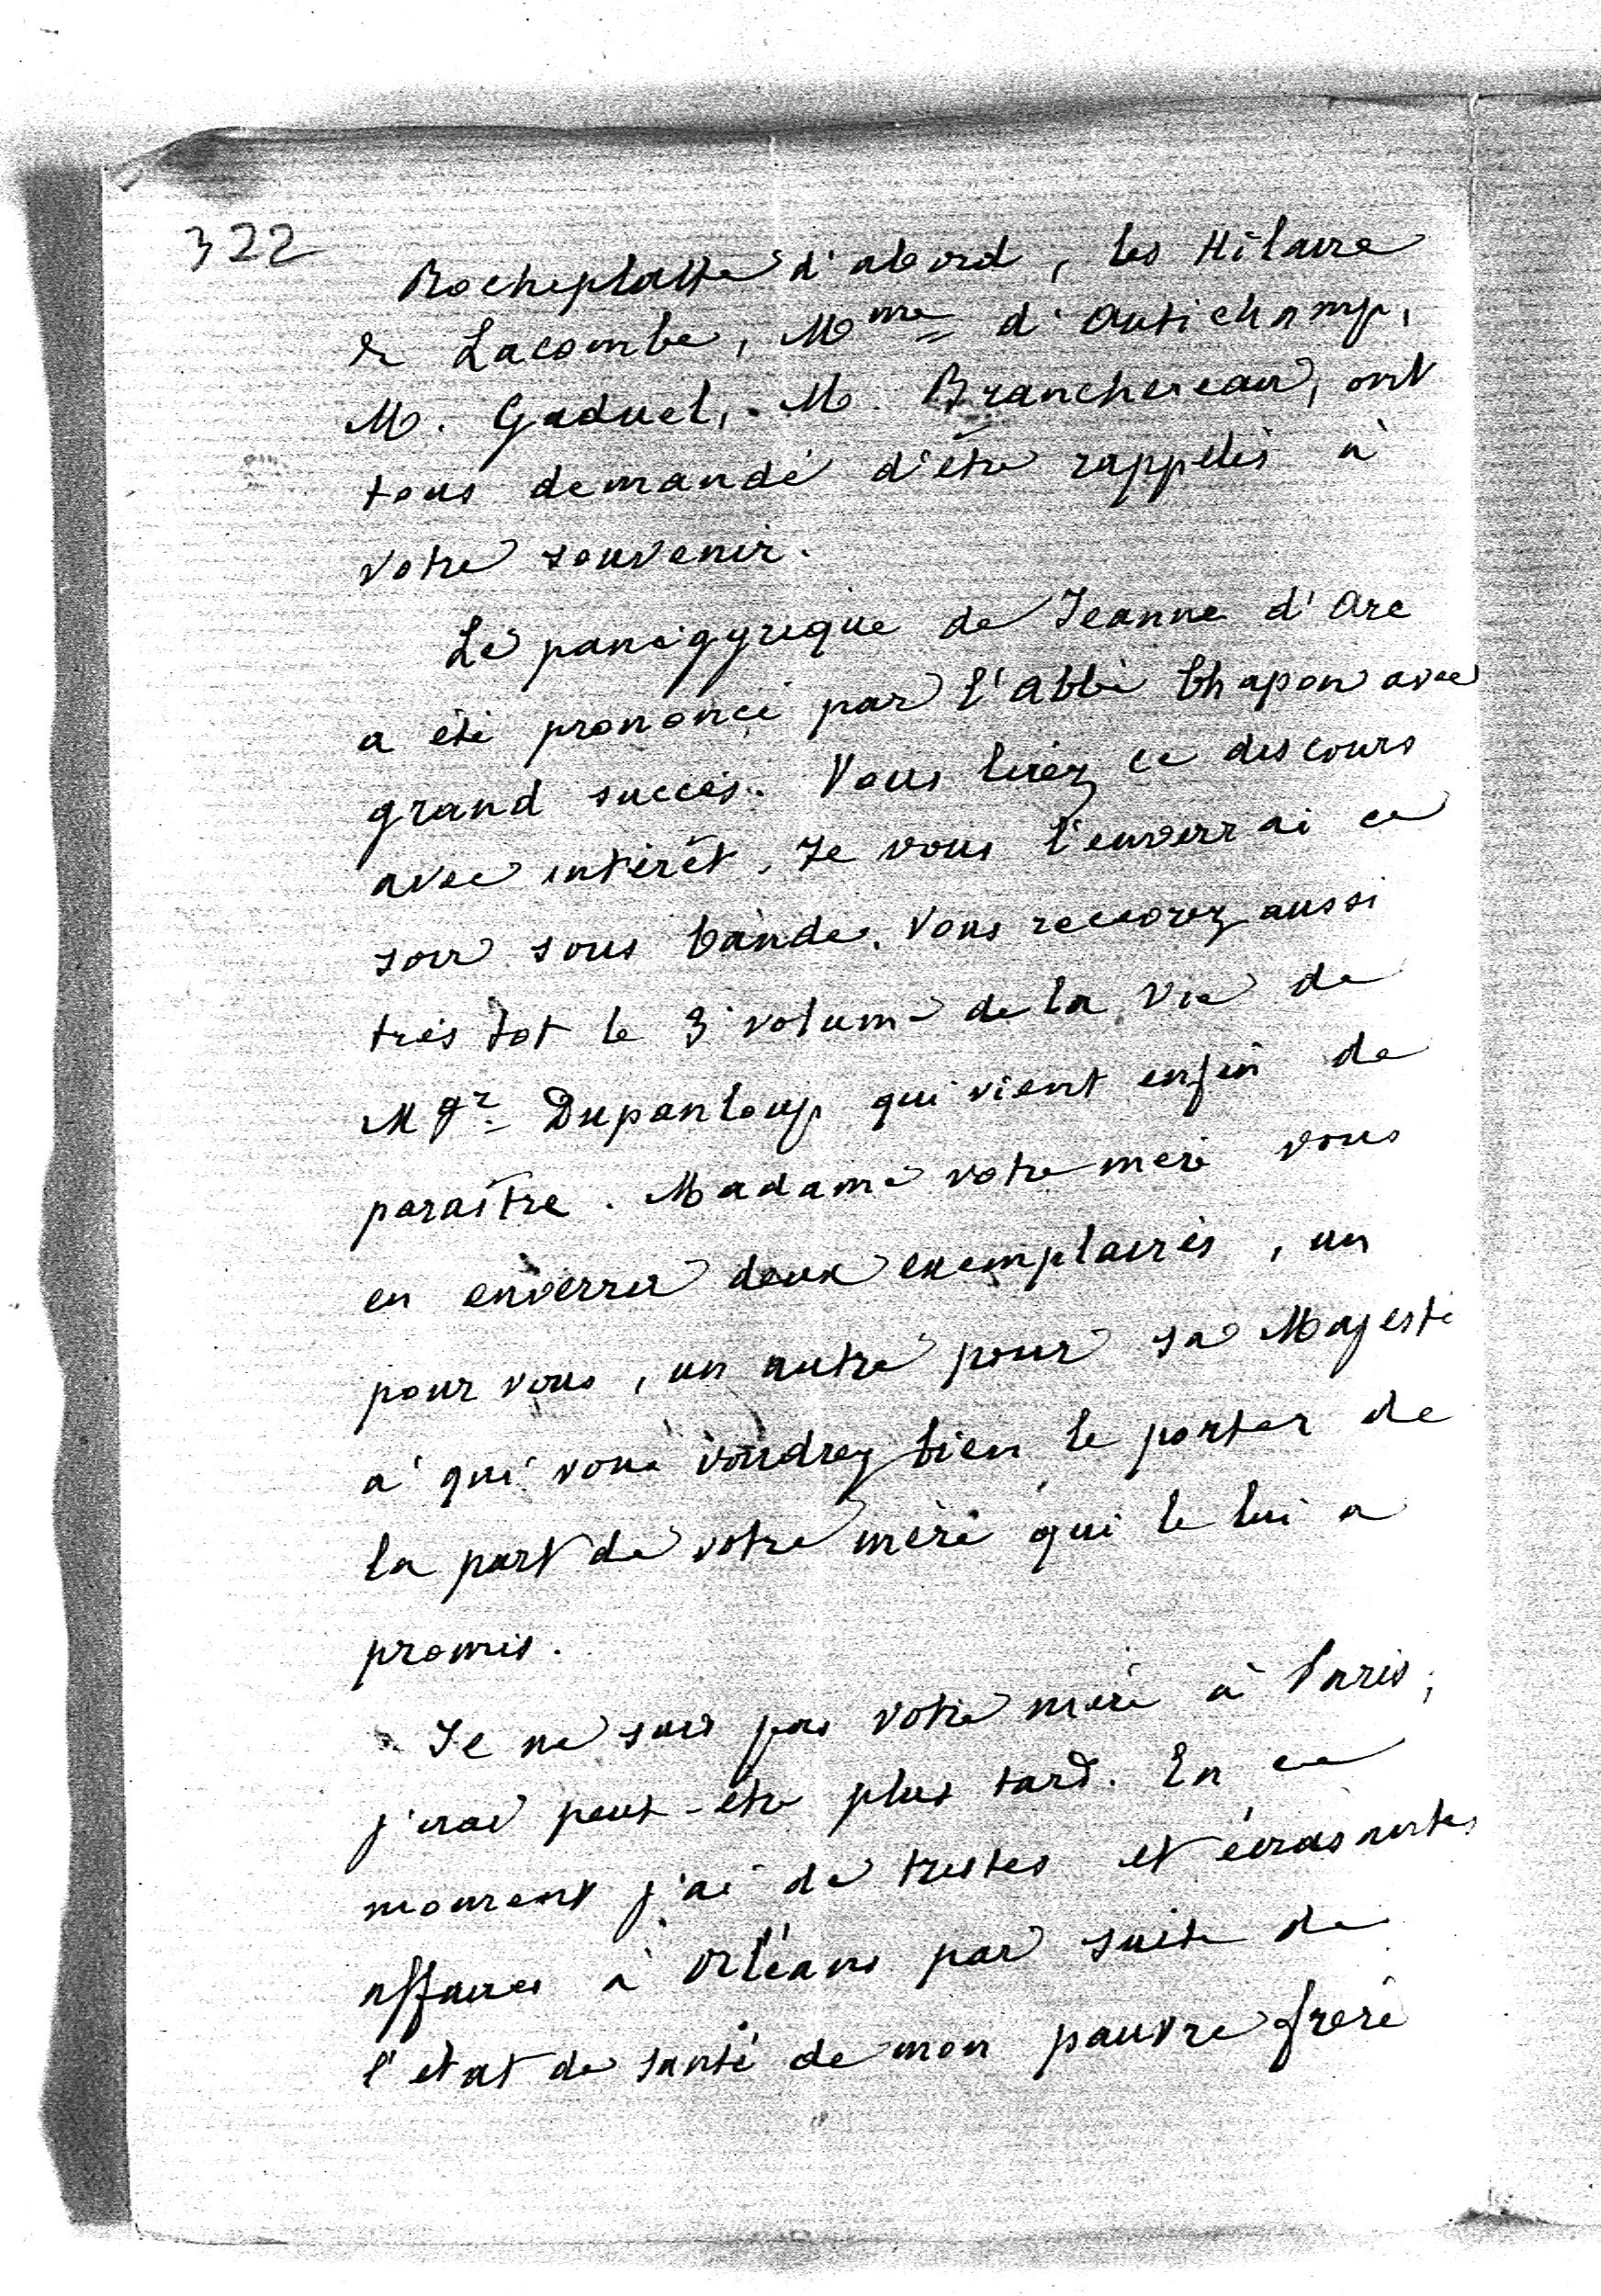 322
Rocheplatte d'abord, les Hilaire
de Lacombe, Mme d'Autichamp,
M. Gaduel, M. Branchereau, ont
tous demandé d'être rappelés à
votre souvenir.
Le panégyrique de Jeanne d'Arc
a été prononcé par l'abbé Chapon avec
grand succès. Vous lirez ce discours
avec intérêt. Je vous l'enverrai ce
soir sous bande. Vous recevrez aussi
très tot le 3e volume de la Vie de
Mgr Dupanloup qui vient enfin de
paraître. Madame votre mère vous
en enverra deux exemplaires, un
pour vous, un autre pour sa Majesté
à qui vous voudrez bien le porter de
la part de votre mère qui le lui a
promis.
Je ne suis pas votre mère à Paris;
j'irai peut-être plus tard. En ce
moment j'ai de tristes et écrasantes
affaires à Orléans par suite de
l'etat de santé de mon pauvre frère